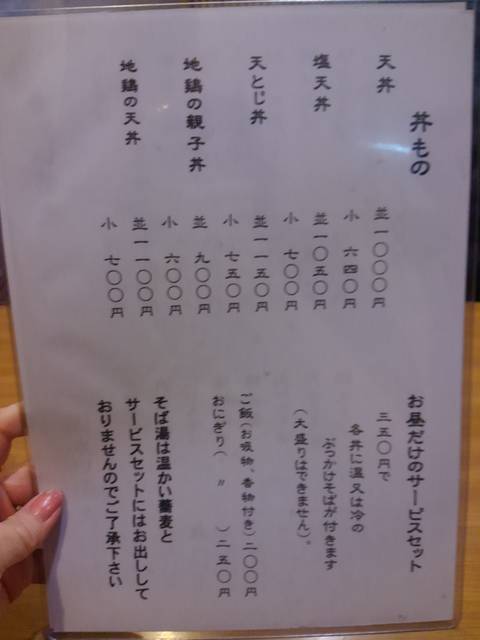 丼もの
天丼
並一〇〇〇円
小 六四〇円
塩天丼
並一〇五〇円
小 七〇〇円
天とじ丼
並一一五〇円
小 七五〇円
地鶏の親子丼
並 九〇〇円
小 六〇〇円
地鶏の天丼
並一一〇〇円
小 七〇〇円
お昼だけのサービスセット
三五〇円で
各丼に温又は冷の
ぶっかけそばが付きます
(大盛りはできません)。
ご飯(お吸物、香物付き)二〇〇円
おにぎり( 〃 )二五〇円
そば湯は温かい蕎麦と
サービスセットにはお出しして
おりませんのでご了承下さい